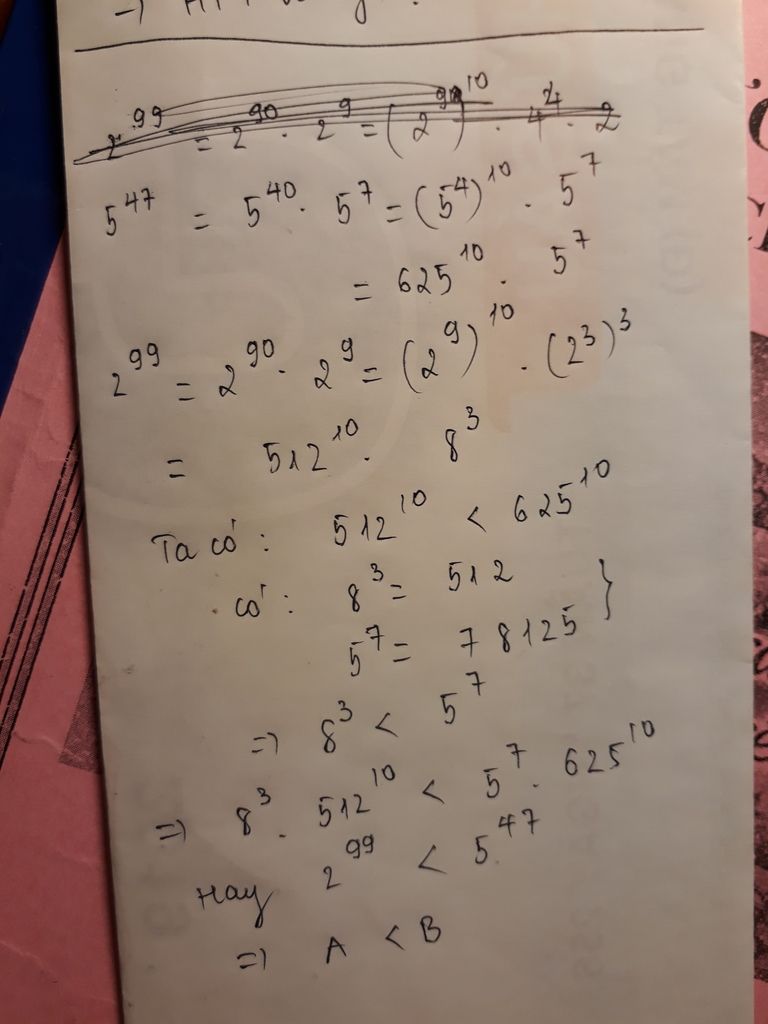 2^99 = 2^90 . 2^9 = (2^9)^10 . 4^4 . 2
5^47 = 5^40 . 5^7 = (5^4)^10 . 5^7
= 625^10 . 5^7
2^99 = 2^90 . 2^9 = (2^9)^10 . (2^3)^3
= 512^10 . 8^3
Ta có : 512^10 < 625^10
có : 8^3 = 512 }
5^7 = 78125
=> 8^3 < 5^7
=> 8^3 . 512^10 < 5^7 . 625^10
Hay 2^99 < 5^47
=> A < B